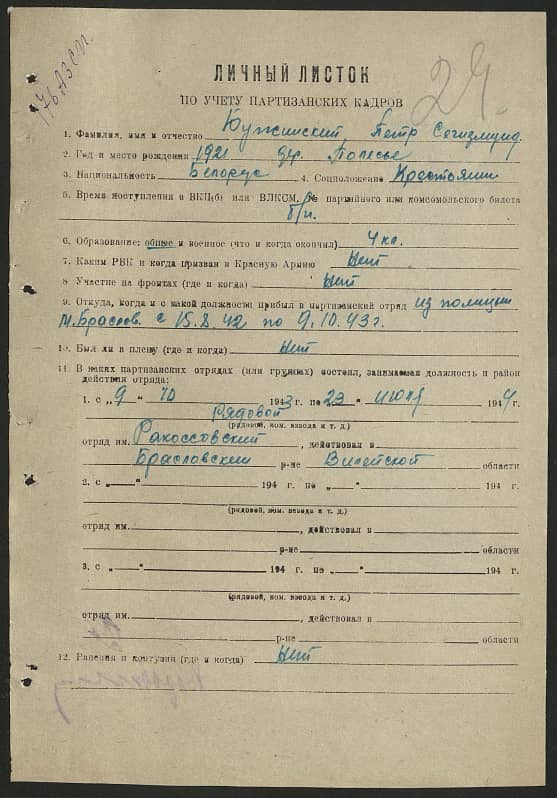 176 АЗСП.
24.
ЛИЧНЫЙ ЛИСТОК
ПО УЧЕТУ ПАРТИЗАНСКИХ КАДРОВ
1. Фамилия, имя и отчество Кужинский Петр Сегизмунд.
2. Год и место рождения 1921 дер. Полесье
3. Национальность Белорус 4. Соцположение Крестьянин
5. Время поступления в ВКП(б) или ВЛКСМ, № партийного или комсомольского билета
б/п.
6. Образование: общее и военное (что и когда окончил) 4 кл.
7. Каким РВК и когда призван в Красную Армию Нет
8. Участие на фронтах (где и когда) Нет
9. Откуда, когда и с какой должности прибыл в партизанский отряд из полиции
м. Браслов. с 15.8.42 по 9.10.43 г.
10. Был ли в плену (где и когда) Нет
11. В каких партизанских отрядах (или группах) состоял, занимаемая должность и район
действия отряда:
1. с „9" 10 1943 г. по 23 июля 1944 г.
Рядовой
(рядовой, ком. взвода и т. д.)
отряд им. Рокоссовский, действовал в
Брасловский р-не Вилейской области
2. с „ " 194 г. по „ " 194 г.
(рядовой, ком. взвода и т. д.)
отряд им. , действовал в
р-не области
3. с „ " 194 г. по „ " 194 г.
(рядовой, ком. взвода и т. д.)
отряд им. , действовал в
р-не области
12. Ранения и контузии (где и когда) Нет